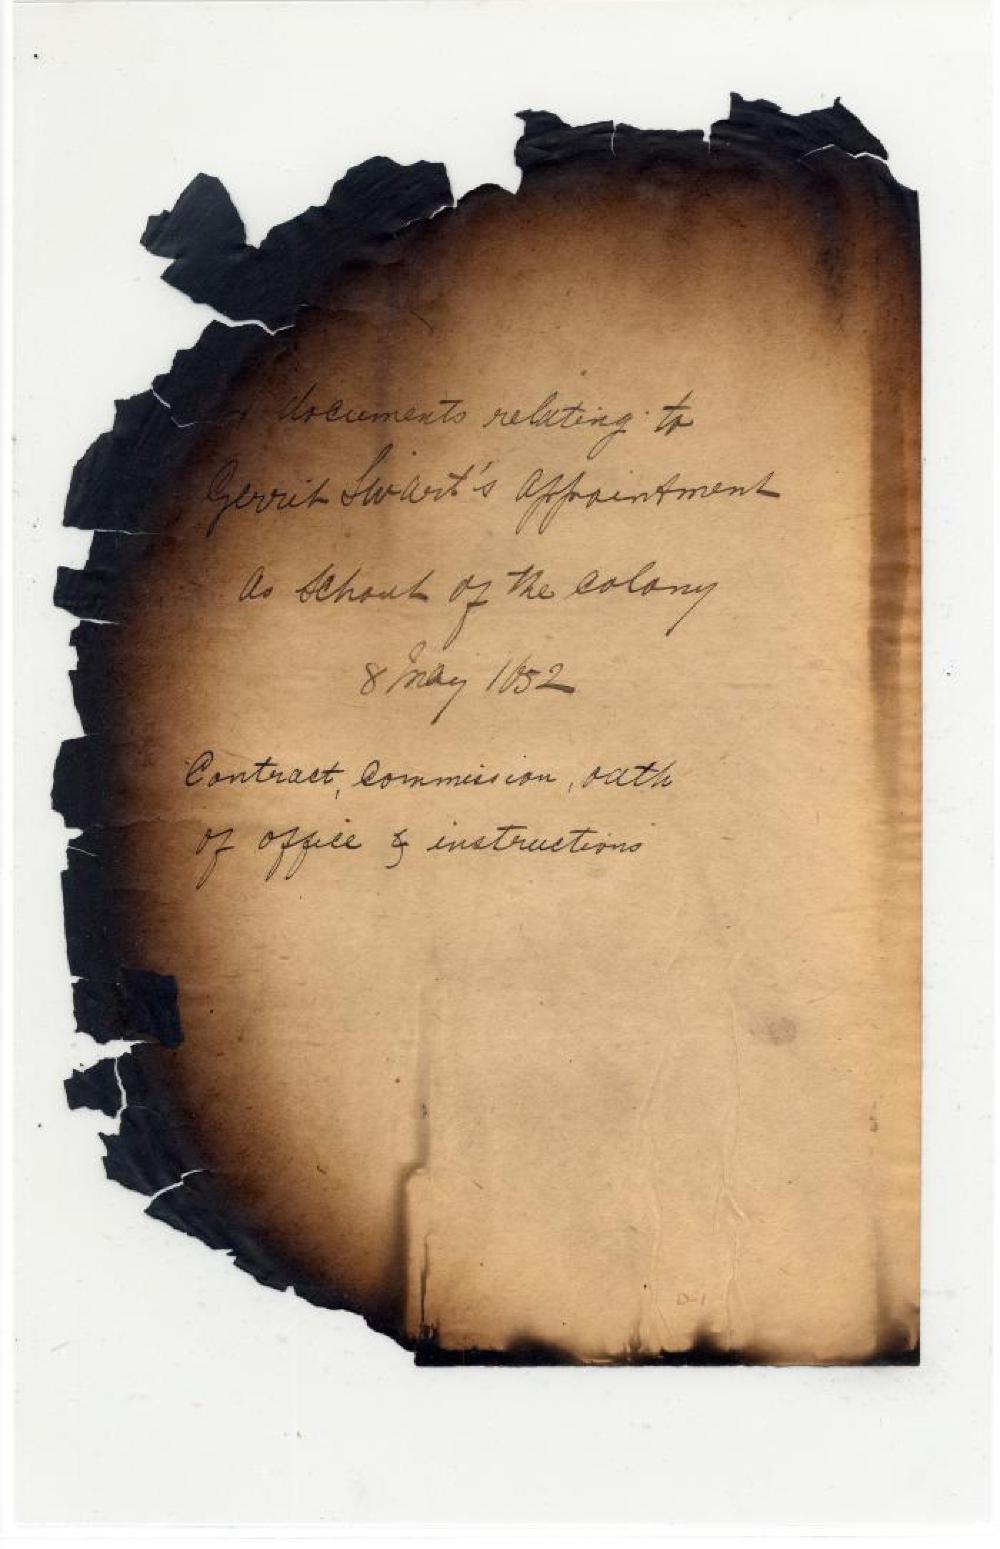 documents relating to
Gerrit Swart's appointment
as schout of the colony
8 May 1652
Contract, commission, oath
of office & instructions
D-1